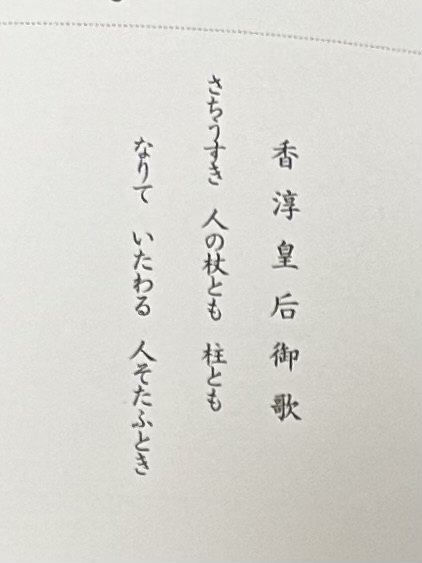 香淳皇后御歌
さちうすき 人の杖とも 柱とも
なりて いたわる 人そたふとき